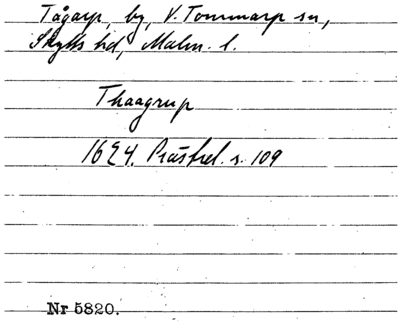 Tågarp, by, V. Tommarp sn,
Skytts hd, Malm. l.
Thaagrup
1624. Prästrel. s. 109
Nr 5820.